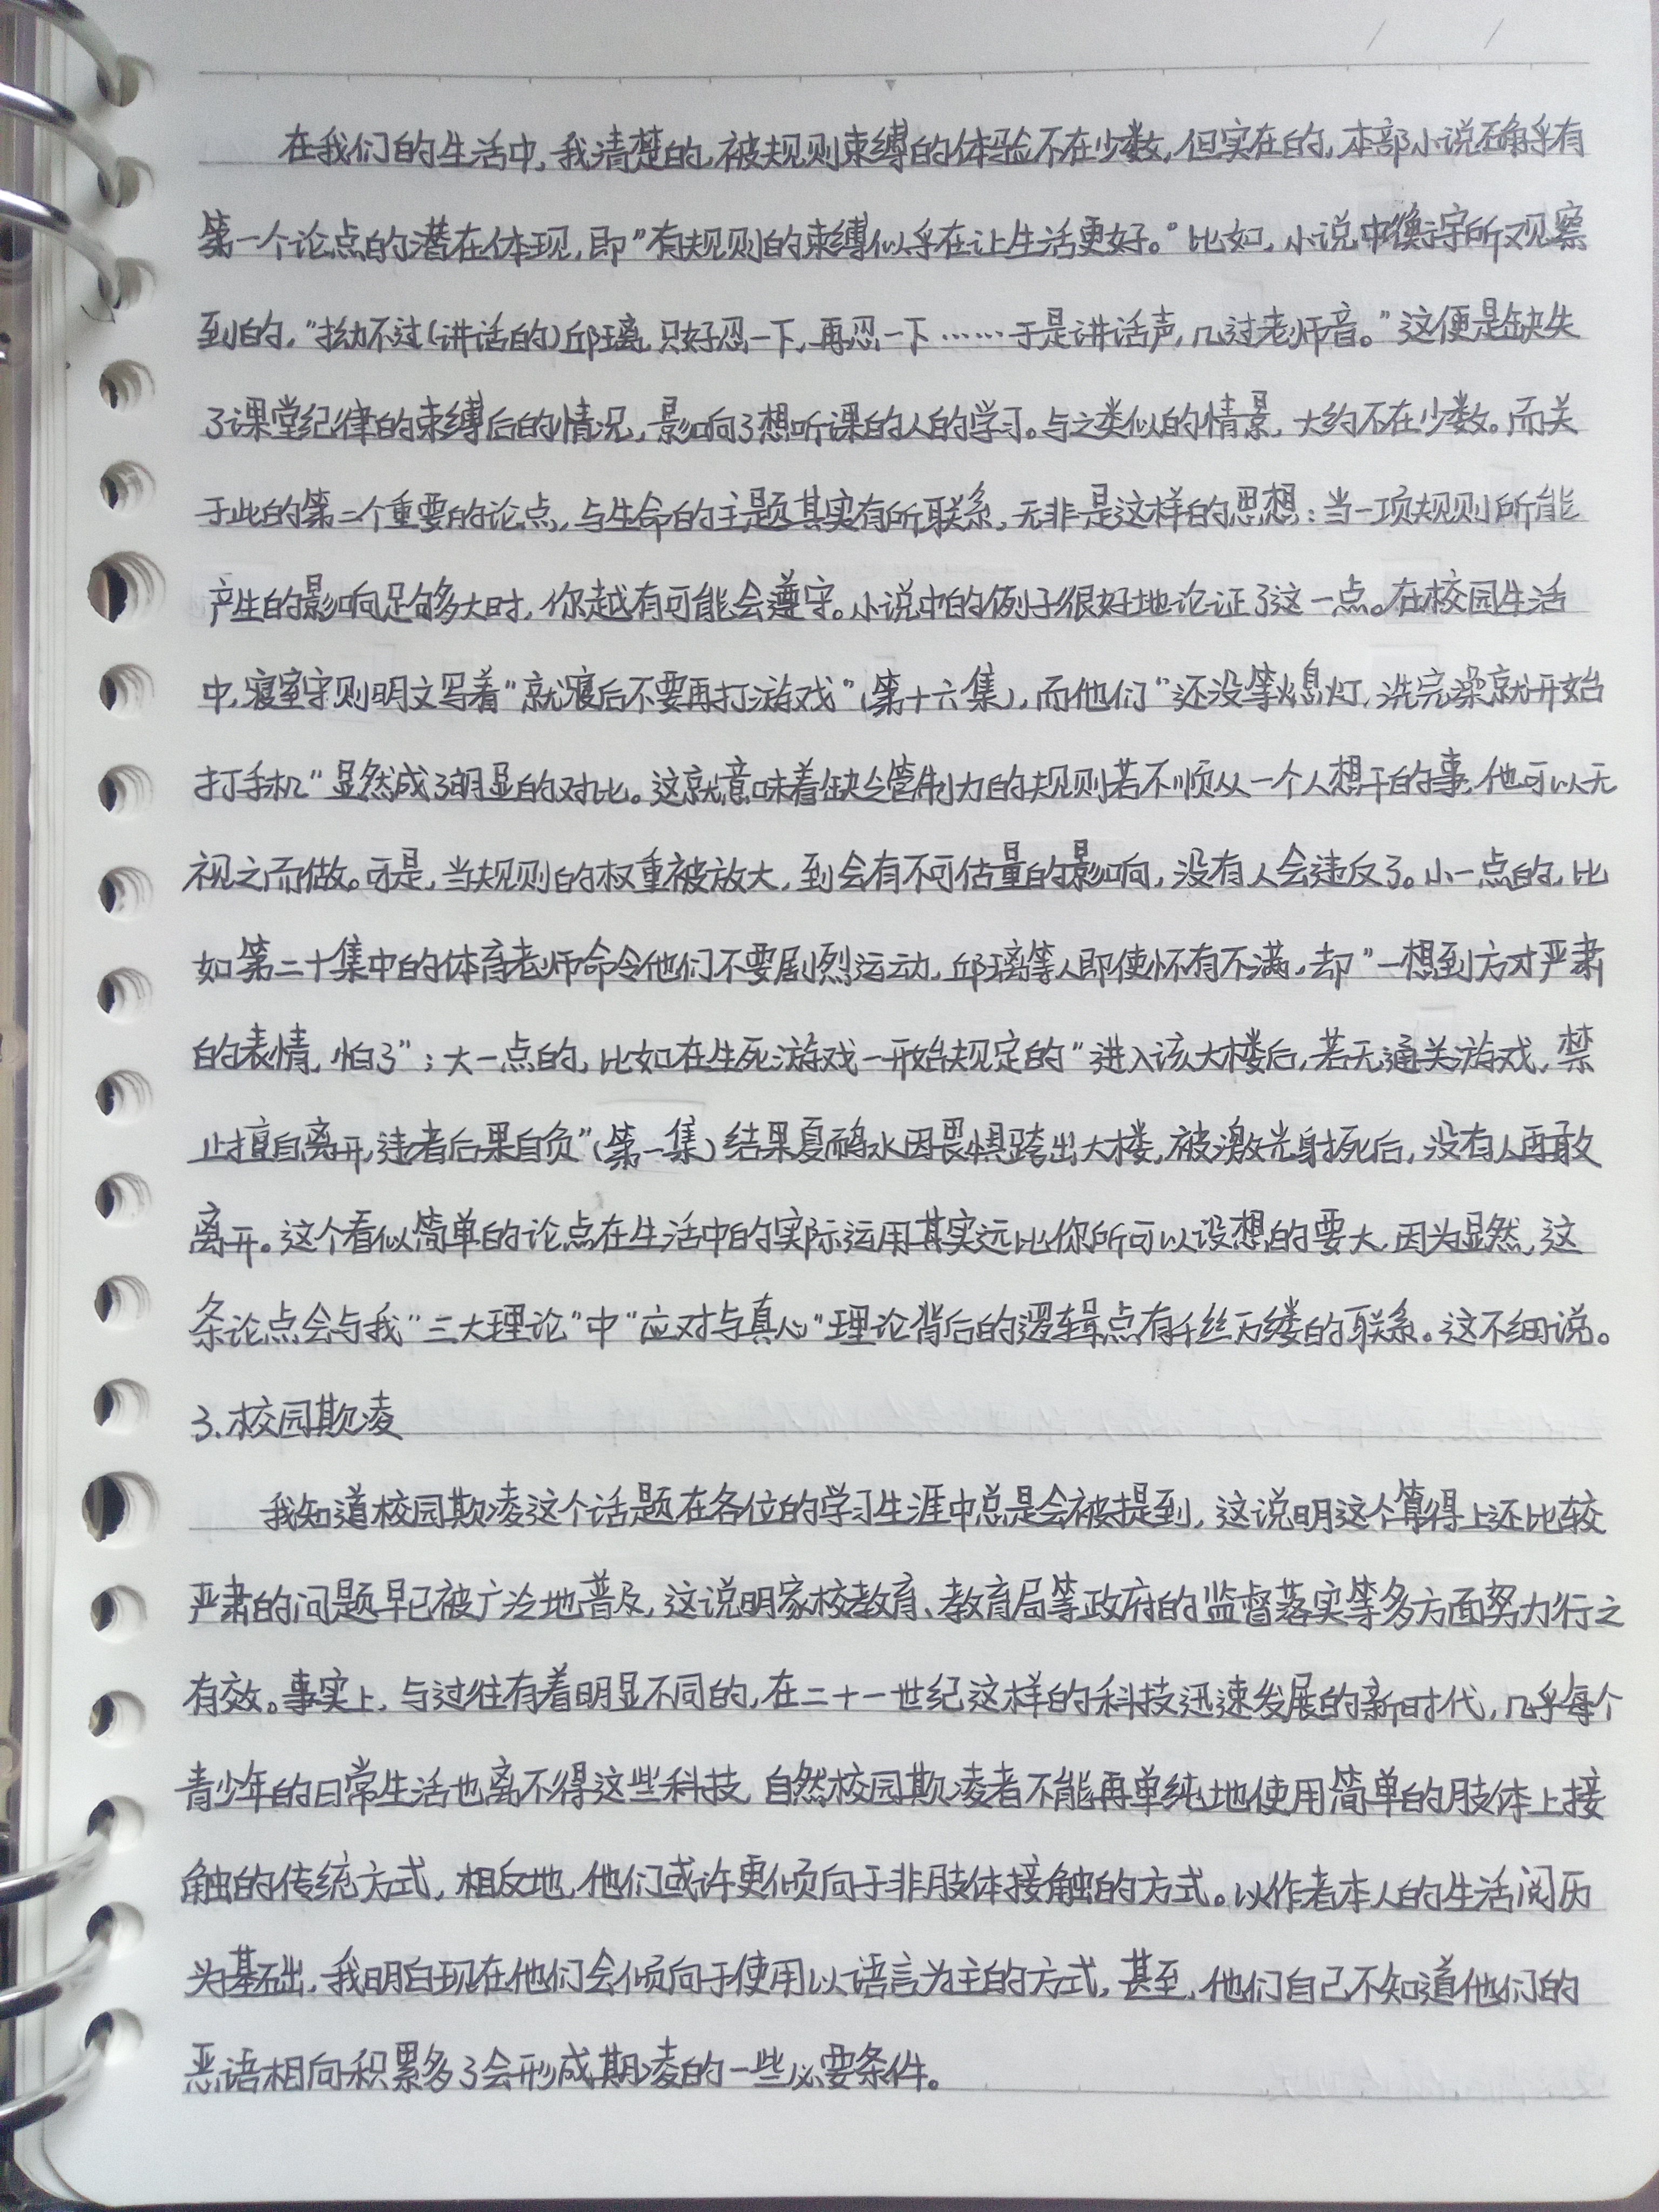 在我们的生活中,我清楚的,被规则束缚的体验不在少数,但实在的,本部小说确乎有
第一个论点的潜在体现,即"有规则的束缚似乎在让生活更好。"比如,小说中焕守所观察
到的,"拗不过(讲话的)邱璃,只好忍一下,再忍一下……于是讲话声,几过老师音。"这便是缺失
了课堂纪律的束缚后的情况,影响了想听课的人的学习。与之类似的情景,大约不在少数。而关
于此的第二个重要的论点,与生命的主题其实有所联系,无非是这样的思想:当一项规则所能
产生的影响足够多大时,你越有可能会遵守。小说中的例子很好地论证了这一点。在校园生活
中,寝室守则明文写着"就寝后不要再打游戏"(第十六集),而他们"还没等熄灯,洗完澡就开始
打手机"显然成了明显的对比。这就意味着缺乏管制力的规则若不顺从一个人想干的事,他可以无
视之而做。可是,当规则的权重被放大,到会有不可估量的影响,没有人会违反了。小一点的,比
如第二十集中的体育老师命令他们不要剧烈运动,邱璃等人即使怀有不满,却"一想到方才严肃
的表情,怕了";大一点的,比如在生死游戏一开始规定的"进入该大楼后,若无通关游戏,禁
止擅自离开,违者后果自负"(第一集)结果夏确水因畏惧跨出大楼,被激光射死后,没有人再敢
离开。这个看似简单的论点在生活中的实际运用其实远比你所可以设想的要大,因为显然,这
条论点会与我"三大理论"中"应对与真心"理论背后的逻辑点有千丝万缕的联系。这不细说。
3.校园欺凌
我知道校园欺凌这个话题在各位的学习生涯中总是会被提到,这说明这个算得上还比较
严肃的问题早已被广泛地普及,这说明家校教育、教育局等政府的监督落实等多方面努力行之
有效。事实上,与过往有着明显不同的,在二十一世纪这样的科技迅速发展的新时代,几乎每个
青少年的日常生活也离不得这些科技,自然校园欺凌者不能再单纯地使用简单的肢体上接
触的传统方式,相反地,他们或许更倾向于非肢体接触的方式。以作者本人的生活阅历
为基础,我明白现在他们会倾向于使用以语言为主的方式,甚至,他们自己不知道他们的
恶语相向积累多了会形成欺凌的一些必要条件。